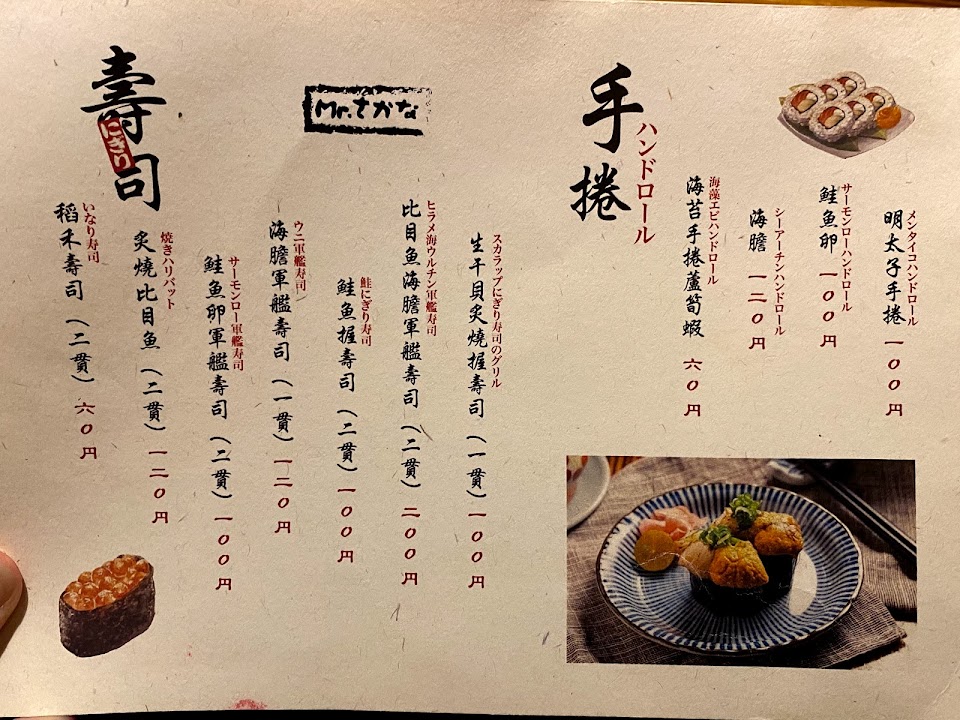 手捲
ハンドロール
メンタイコハンドロール
明太子手捲 一００円
サーモンローハンドロール
鮭魚卵 一００円
シーアーチンハンドロール
海膽 一二０円
海藻エビハンドロール
海苔手捲蘆筍蝦 六０円
Mr.さかな
壽司
にぎり
スカラップにぎり寿司のグリル
生干貝炙燒握壽司（一貫）一００円
ヒラメ海ウルチン軍艦寿司
比目魚海膽軍艦壽司（二貫）二００円
鮭にぎり寿司
鮭魚握壽司（二貫）一００円
ウニ軍艦寿司
海膽軍艦壽司（一貫）一二０円
サーモンロー軍艦寿司
鮭魚卵軍艦壽司（二貫）一００円
焼きハリバット
炙燒比目魚（二貫）一二０円
いなり寿司
稻禾壽司（二貫）六０円